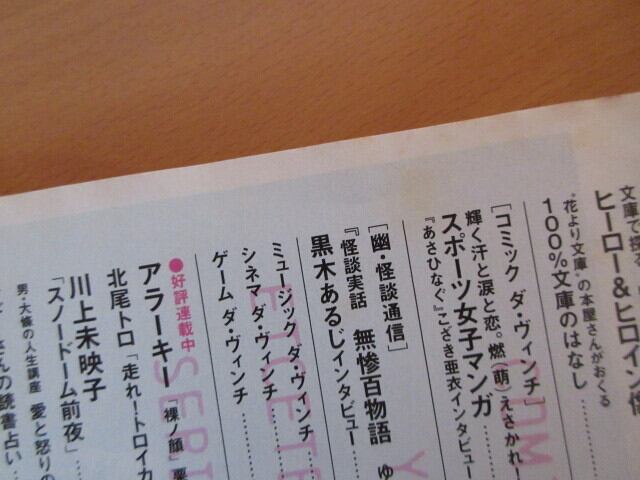 文庫で捻る
ヒーロー&ヒロイン
“花より文庫”の本屋さんがおくる
100%文庫のはなし
[コミック ダ・ヴィンチ]
輝く汗と涙と恋。燃(萌)えさかれ
スポーツ女子マンガ
『あさひなぐ』こざき亜衣インタビュー
[幽・怪談通信]
『怪談実話 無惨百物語 ゆ
黒木あるじインタビュー
ミュージック ダ・ヴィンチ
シネマ ダ・ヴィンチ
ゲーム ダ・ヴィンチ
ET・ETE
●好評連載中
SERI
アラーキー「裸ノ顔」
北尾トロ「走れ!トロイカ
川上未映子
「スノードーム前夜」
男・大條の人生講座 愛と怒りの
さんの読書占い